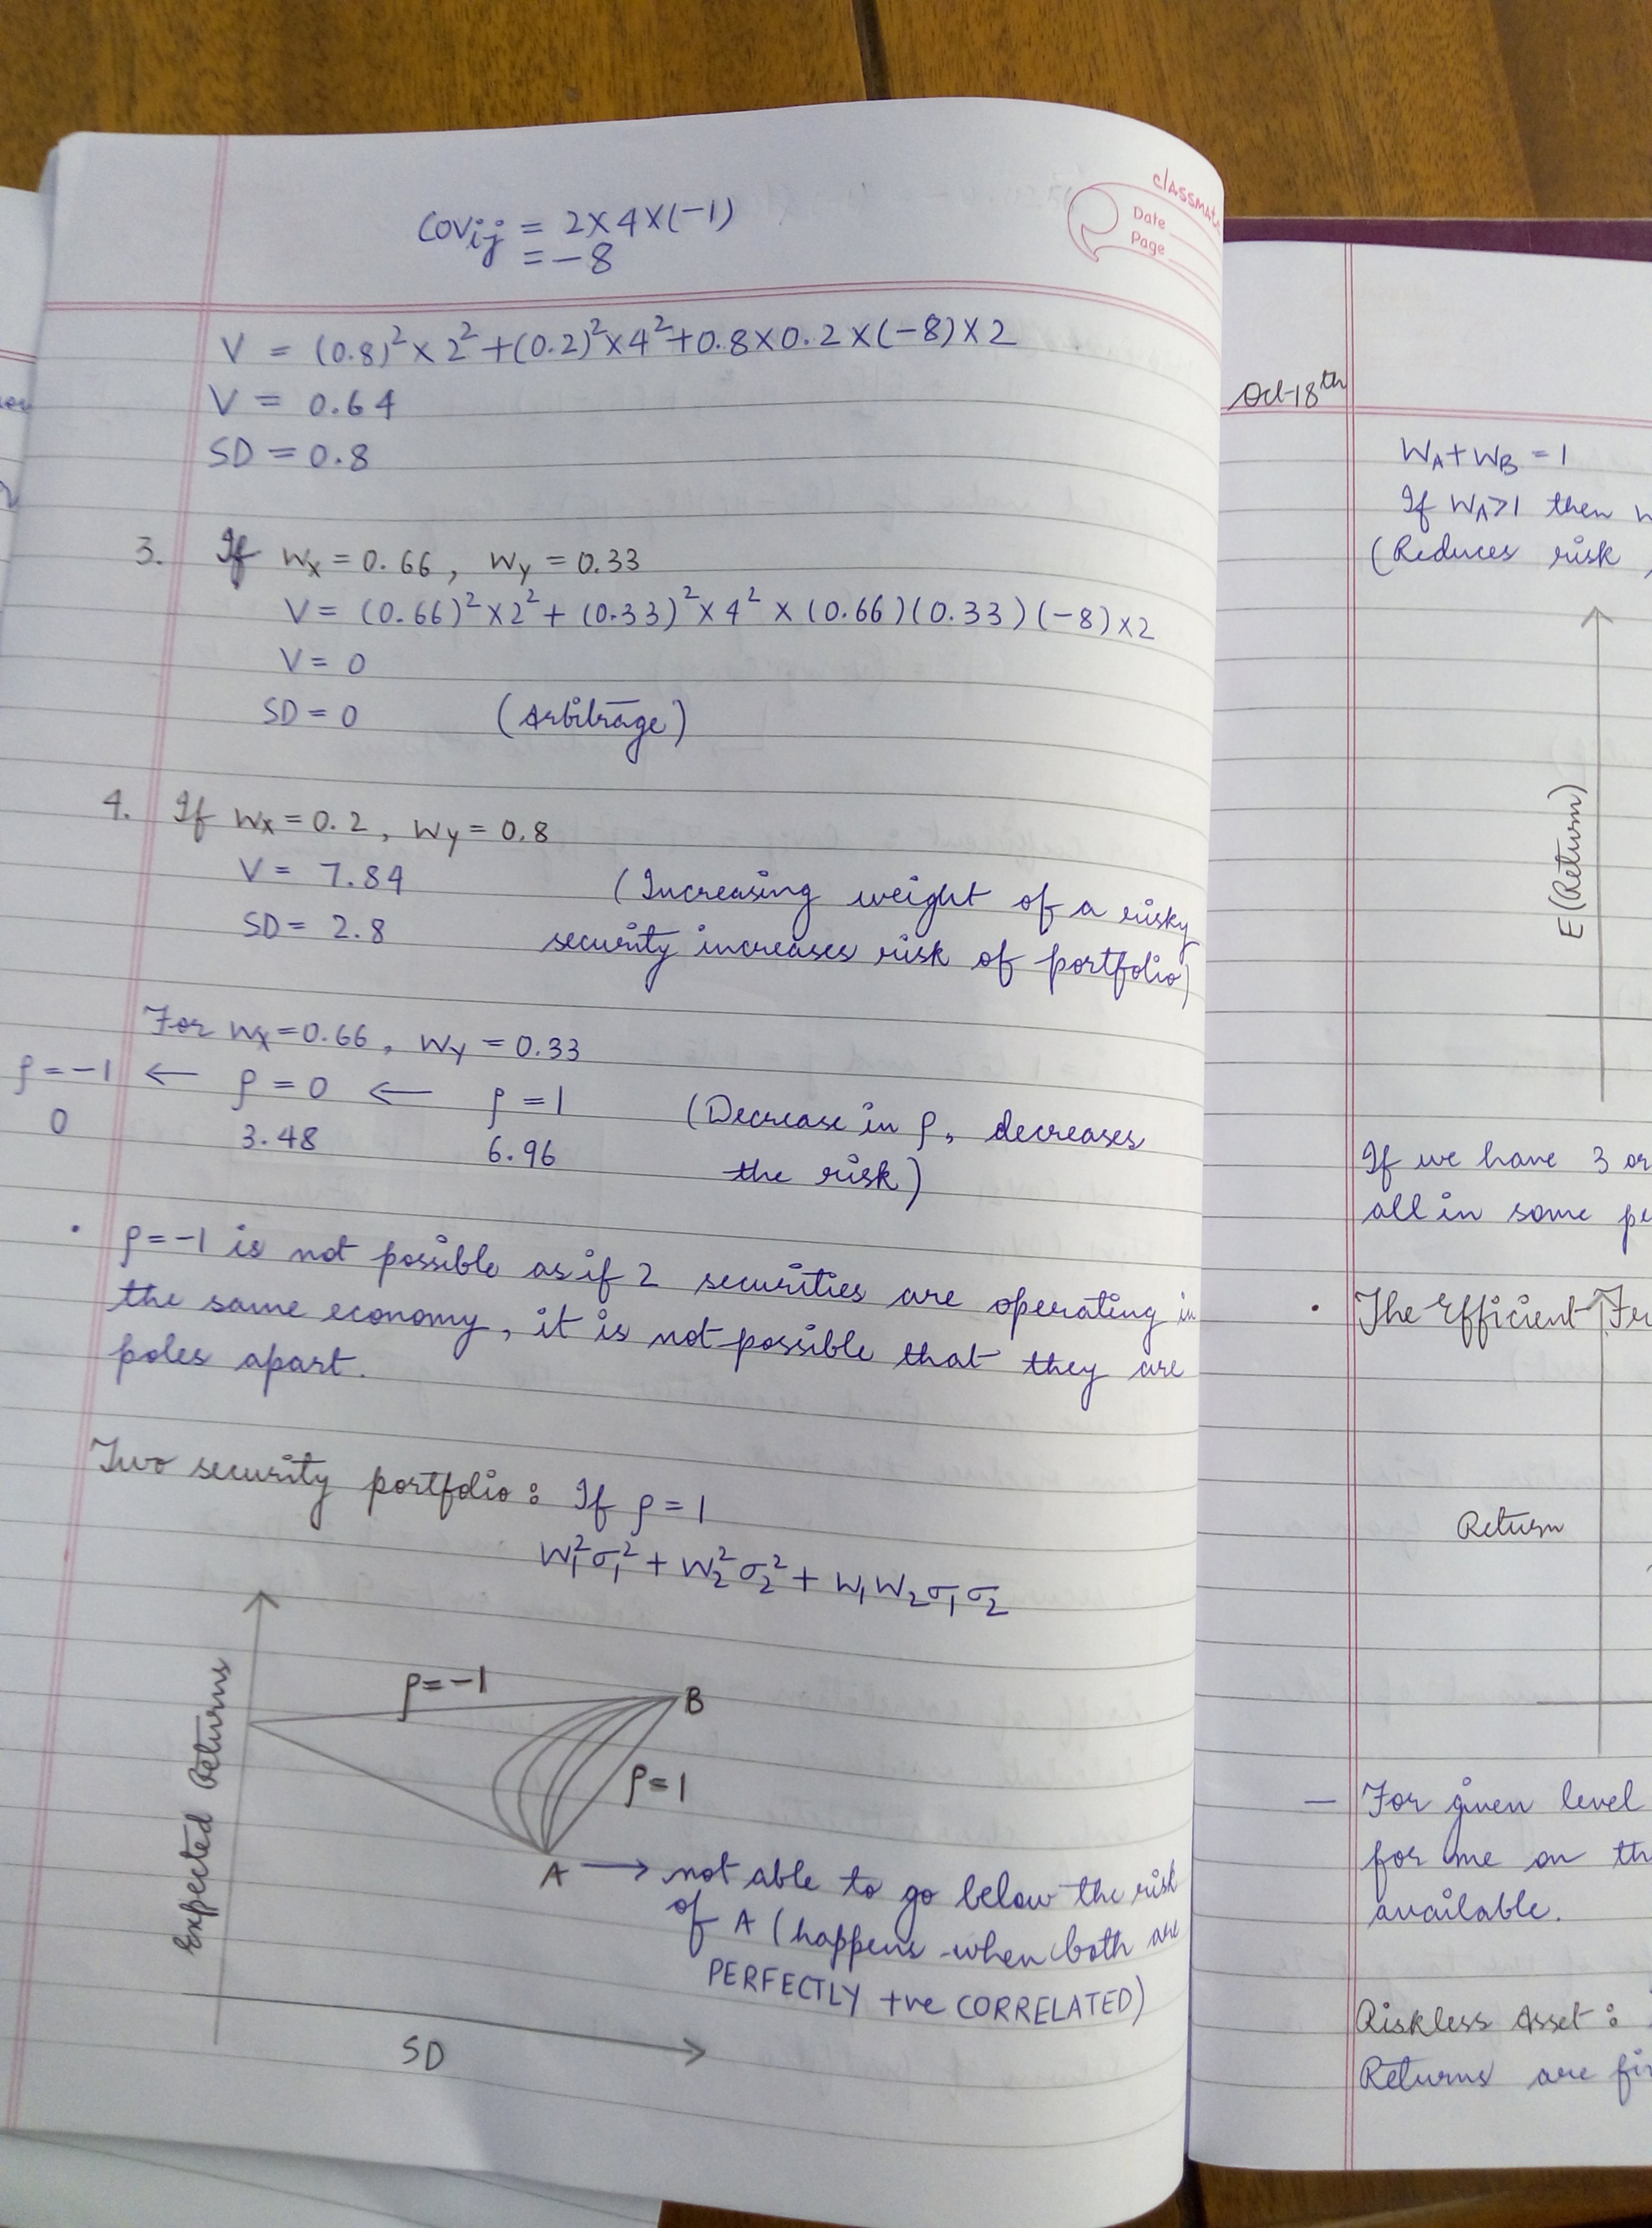 classmate
Date
Page
Covij = 2×4×(-1)
= -8
V = (0.8)²× 2² +(0.2)²×4²+0.8×0.2×(-8)×2
V = 0.64
SD = 0.8
3. If Wx = 0.66, Wy = 0.33
V = (0.66)²×2² + (0.33)²×4² × (0.66)(0.33)(-8)×2
V = 0
SD = 0 (Arbitrage)
4. If Wx = 0.2, Wy = 0.8
V = 7.84 (Increasing weight of a risky
SD = 2.8 security increases risk of portfolio)
For Wx=0.66, Wy = 0.33
ρ=-1 ← ρ = 0 ← ρ = 1 (Decrease in ρ, decreases
0 3.48 6.96 the risk)
• ρ=-1 is not possible as if 2 securities are operating in
the same economy, it is not possible that they are
poles apart.
Two security portfolio: If ρ = 1
W₁²σ₁² + W₂²σ₂² + W₁W₂σ₁σ₂
Expected Returns
ρ=-1
B
ρ=1
A → not able to go below the risk
of A (happens when both are
PERFECTLY +ve CORRELATED)
SD
Oct-18th
WA+WB = 1
If WA>1 then
(Reduces risk
E(Return)
If we have 3 or
all in some
• The Efficient
Return
– For given level
for me on
available.
Riskless Asset:
Returns are